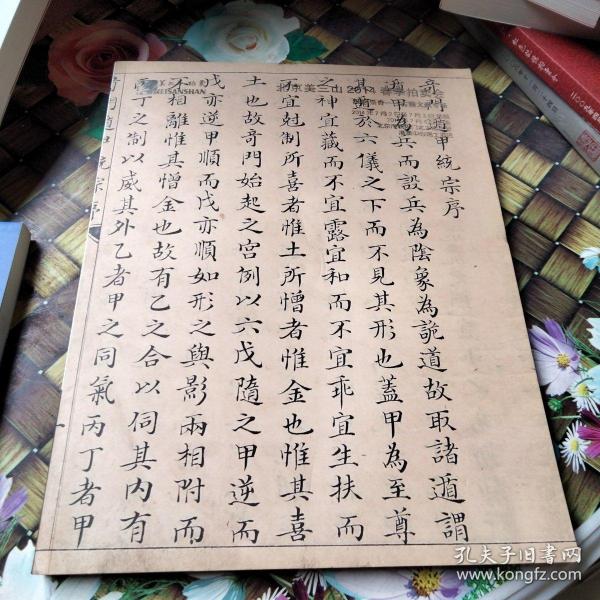 奇門遁甲統宗序
遁甲為兵而設兵為陰象為詭道故取諸遁謂
其遯於六儀之下而不見其形也蓋甲為至尊
之神宜藏而不宜露宜和而不宜乖宜生扶而
不宜尅制所喜者惟土所憎者惟金也惟其喜
土也故奇門始起之宮例以六戊隨之甲逆而
戊亦逆甲順而戊亦順如形之與影兩相附而
不相離惟其憎金也故有乙之合以伺其内有
丙丁之制以威其外乙者甲之同氣丙丁者甲
MEISANSHAN
北京美三山2014春季拍賣會
孔夫子旧书网
www.kongfz.com